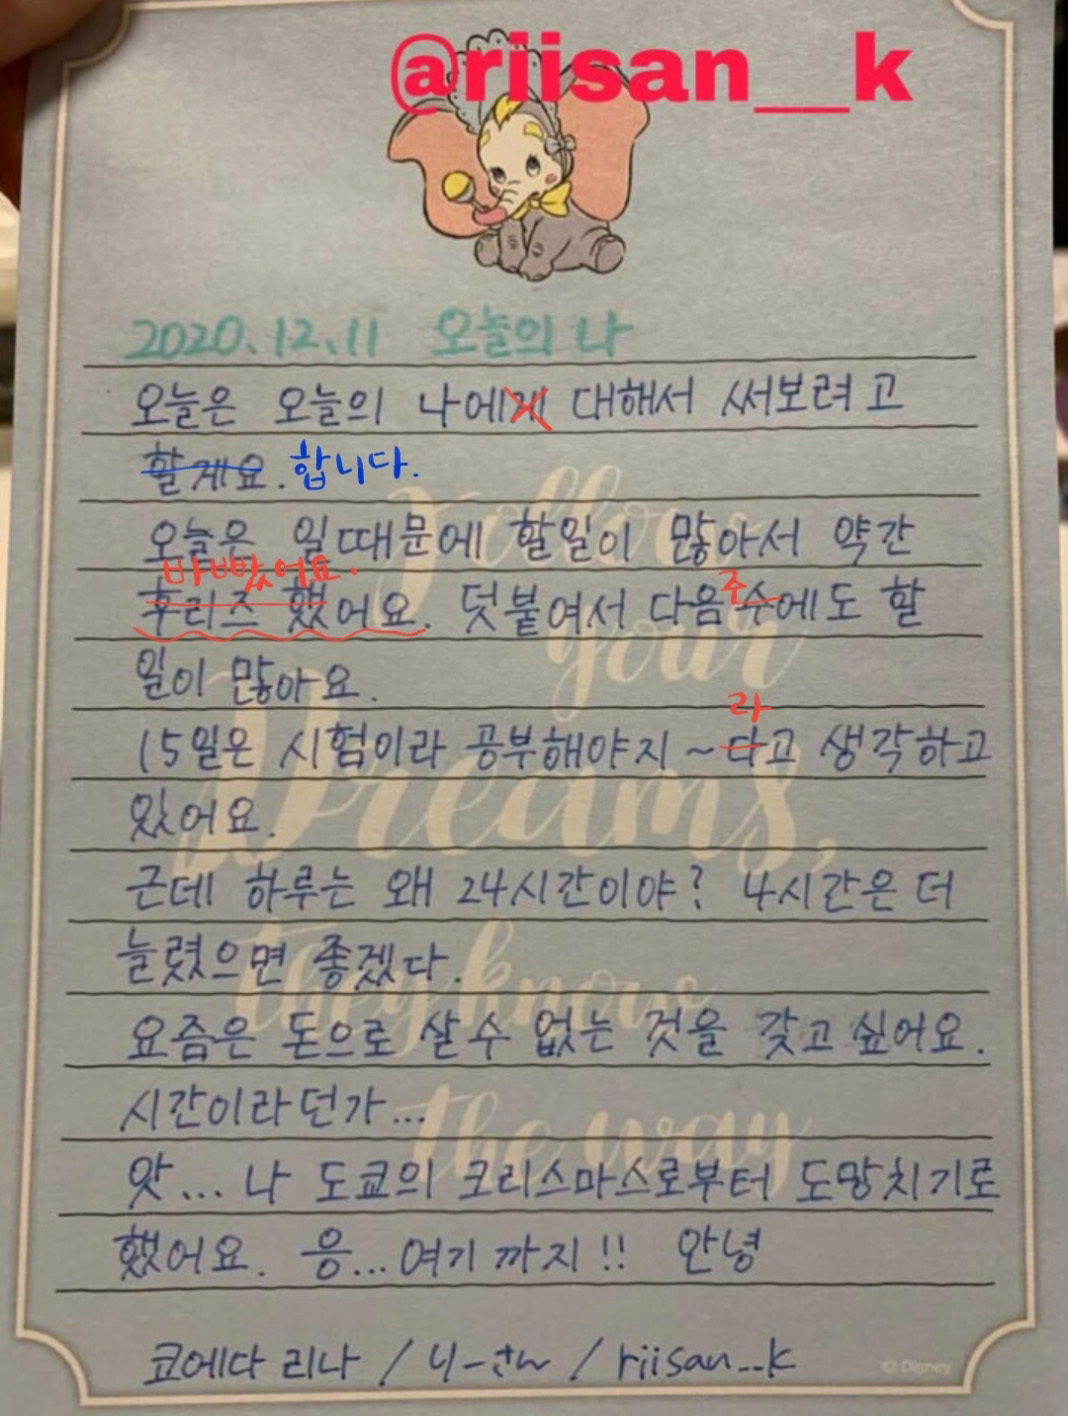 @riisan__k
2020.12.11 오늘의 나
오늘은 오늘의 나에게 대해서 써보려고
할게요. 합니다.
오늘은 일때문에 할일이 많아서 약간
바빴어요.
후리즈 했어요. 덧붙여서 다음수에도 할
주
일이 많아요.
라
15일은 시험이라 공부해야지~다고 생각하고
있어요.
근데 하루는 왜 24시간이야? 4시간은 더
늘렸으면 좋겠다.
요즘은 돈으로 살수 없는 것을 갖고 싶어요.
시간이라던가...
앗... 나 도쿄의 크리스마스로부터 도망치기로
했어요. 응...여기까지!! 안녕
코에다 리나 / りーさん / riisan__k
© Disney
Follow
your
Dreams,
they know
the way